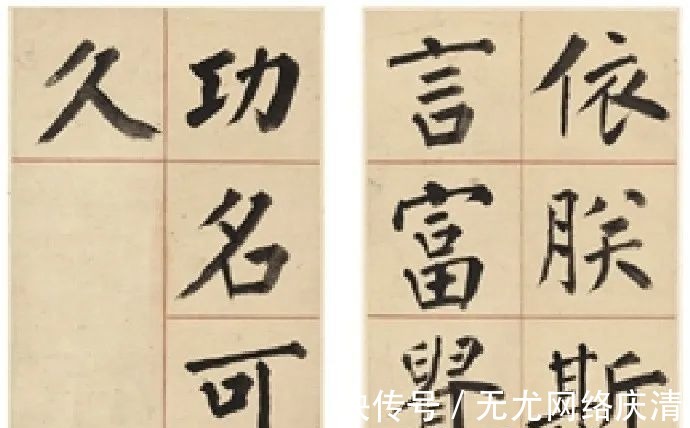 依朕斯
言富貴
功名可
久
快传号/无尤网络庆清